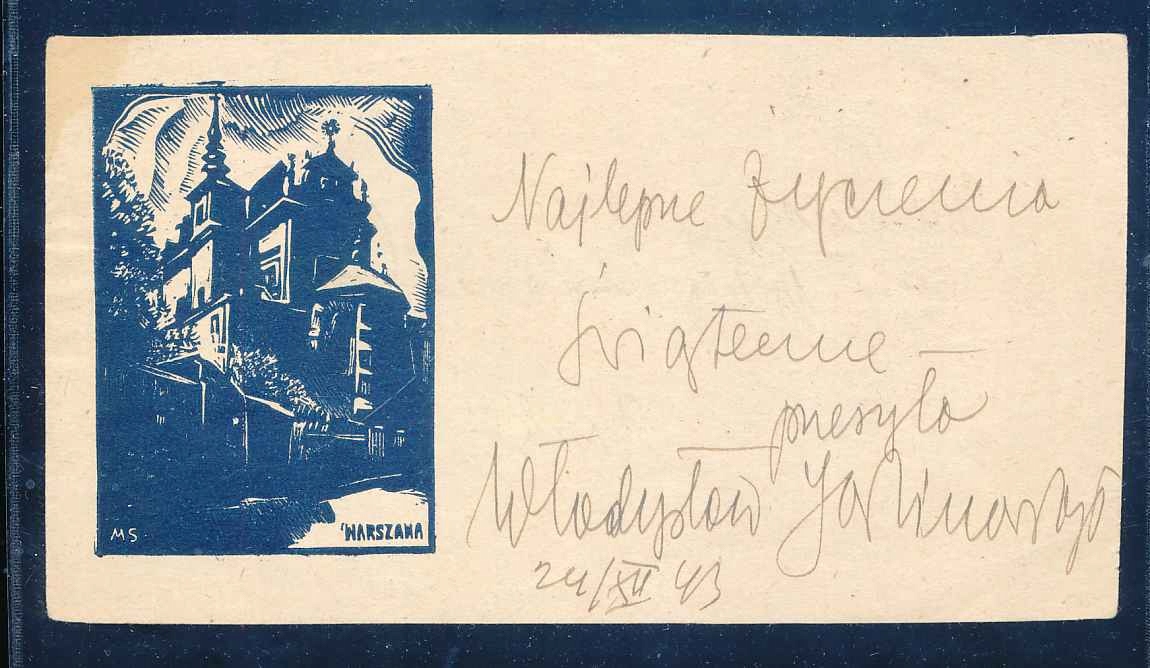 MS
WARSZAWA
Najlepsze życzenia
świąteczne —
— przesyła
Władysław
24/XII 43